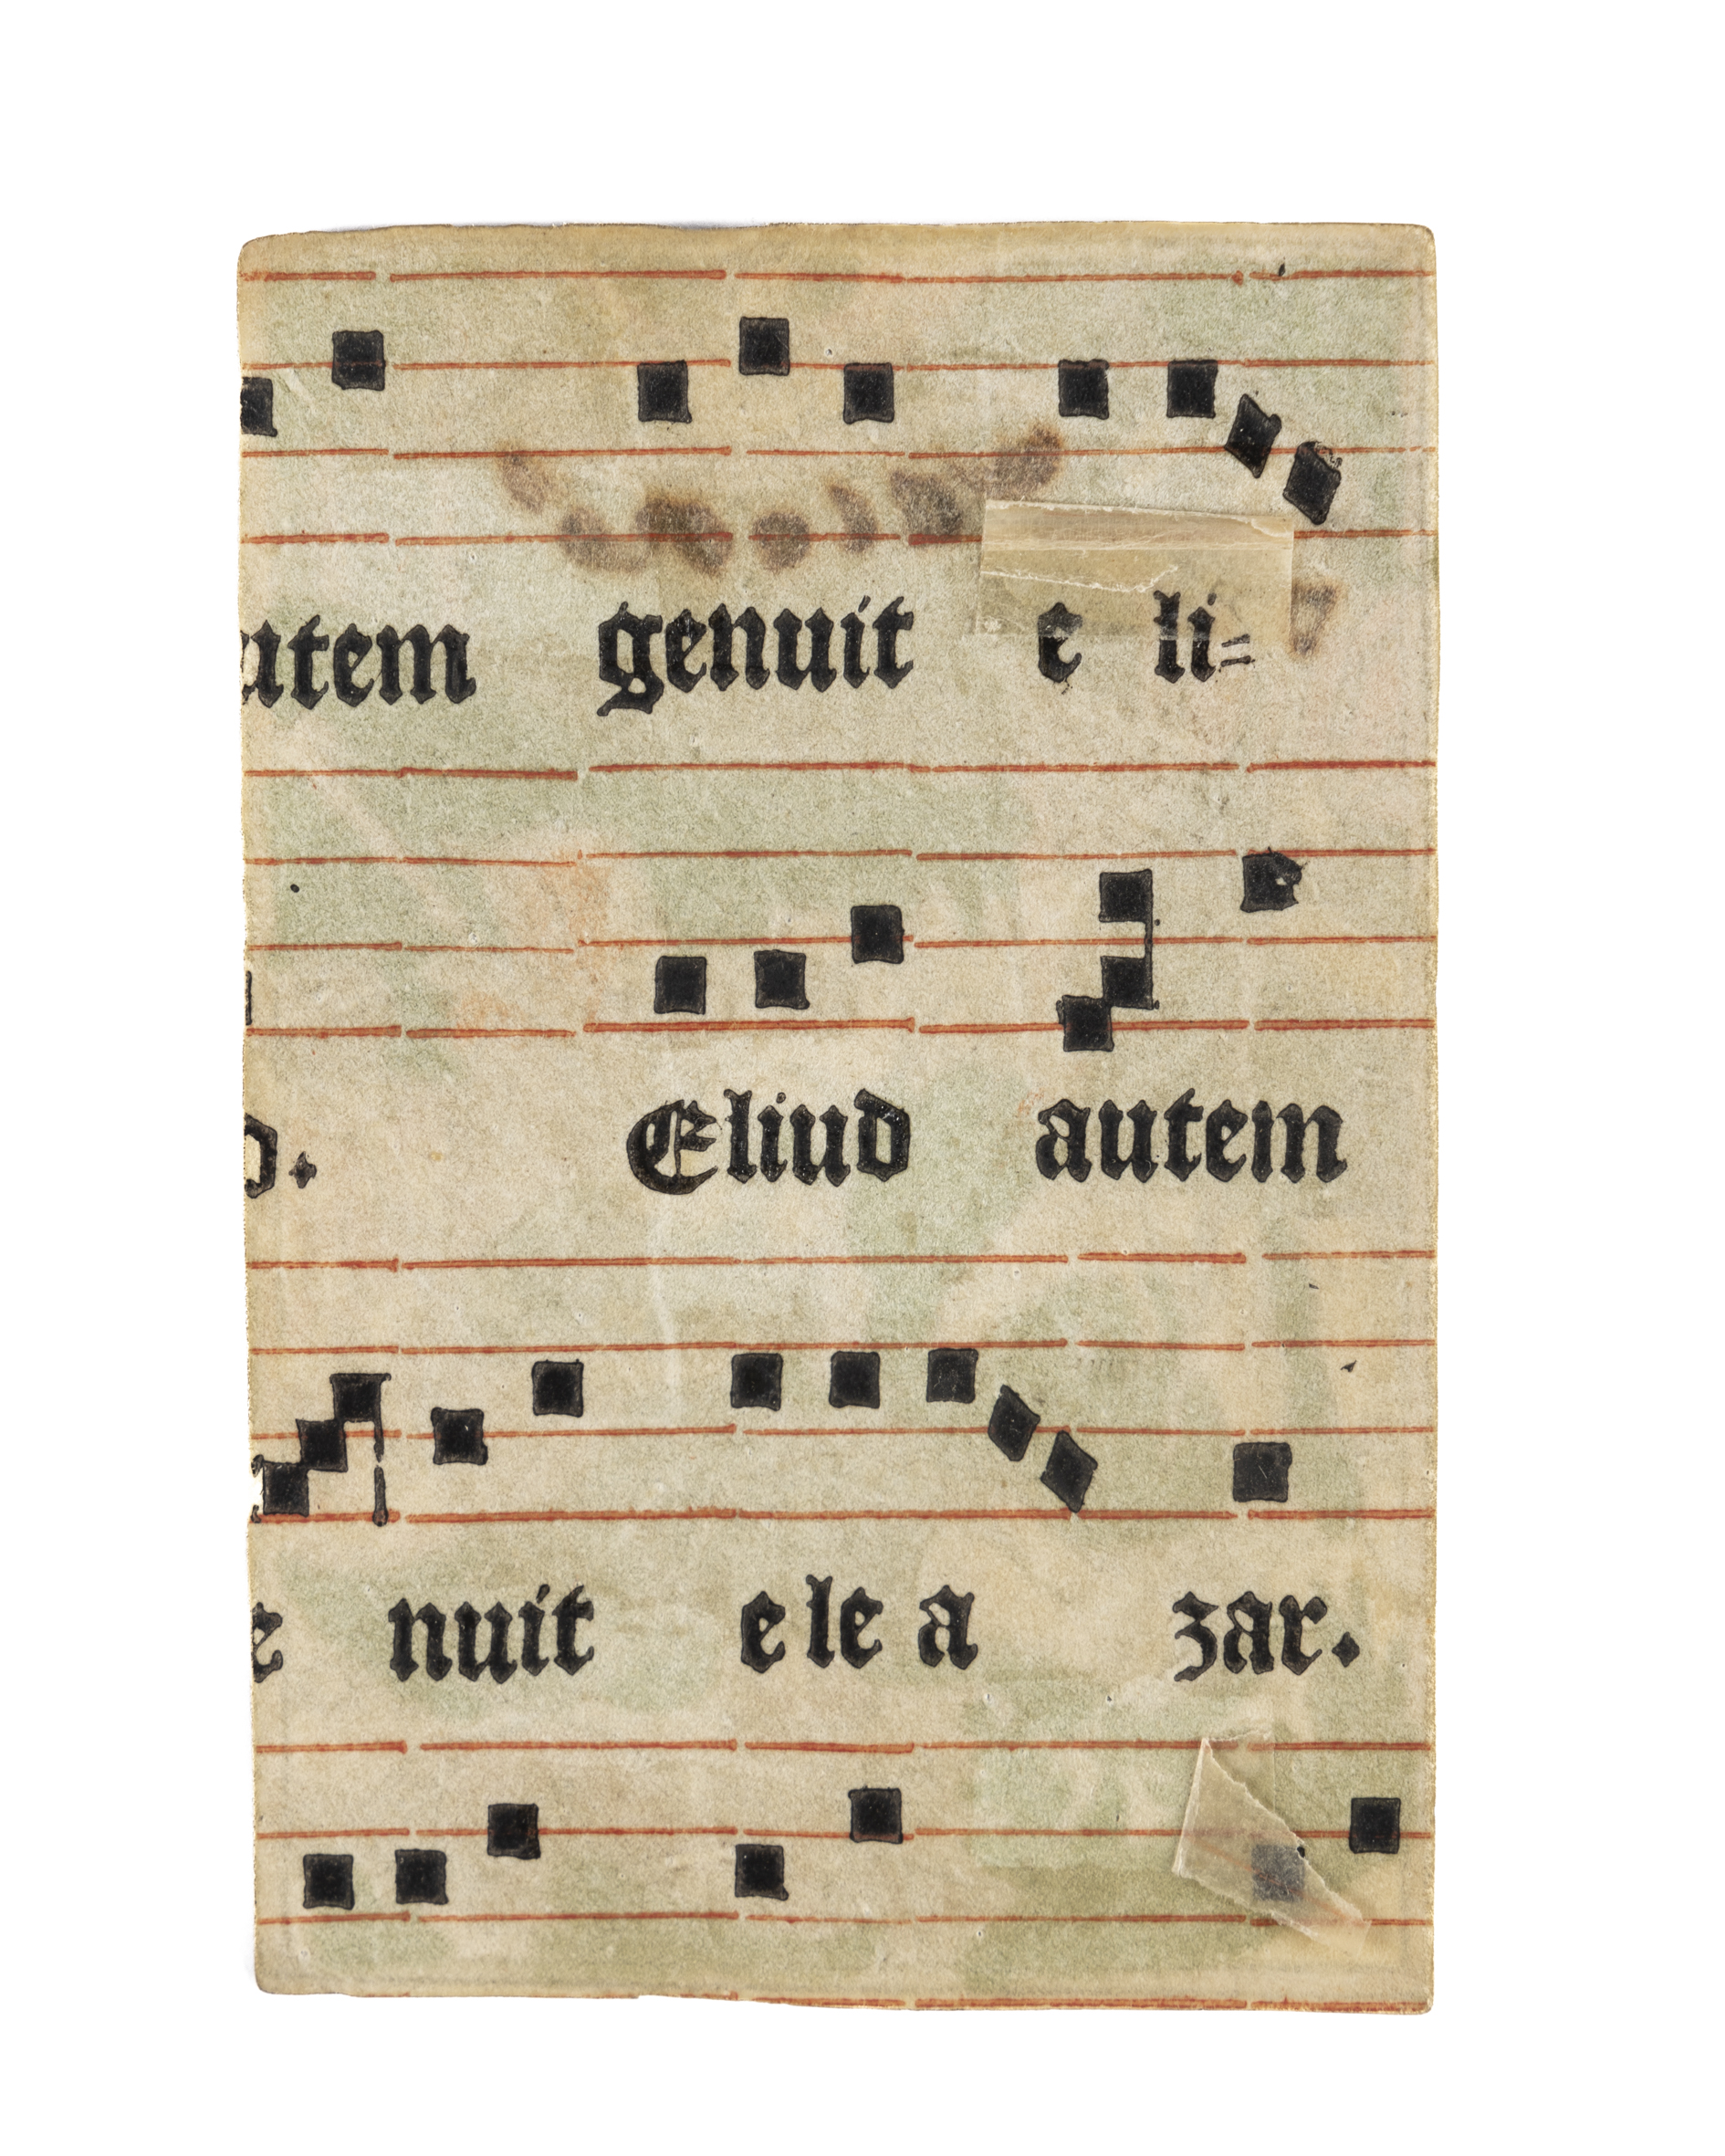 utem genuit e li=
d. Eliud autem
e nuit e le a zar.